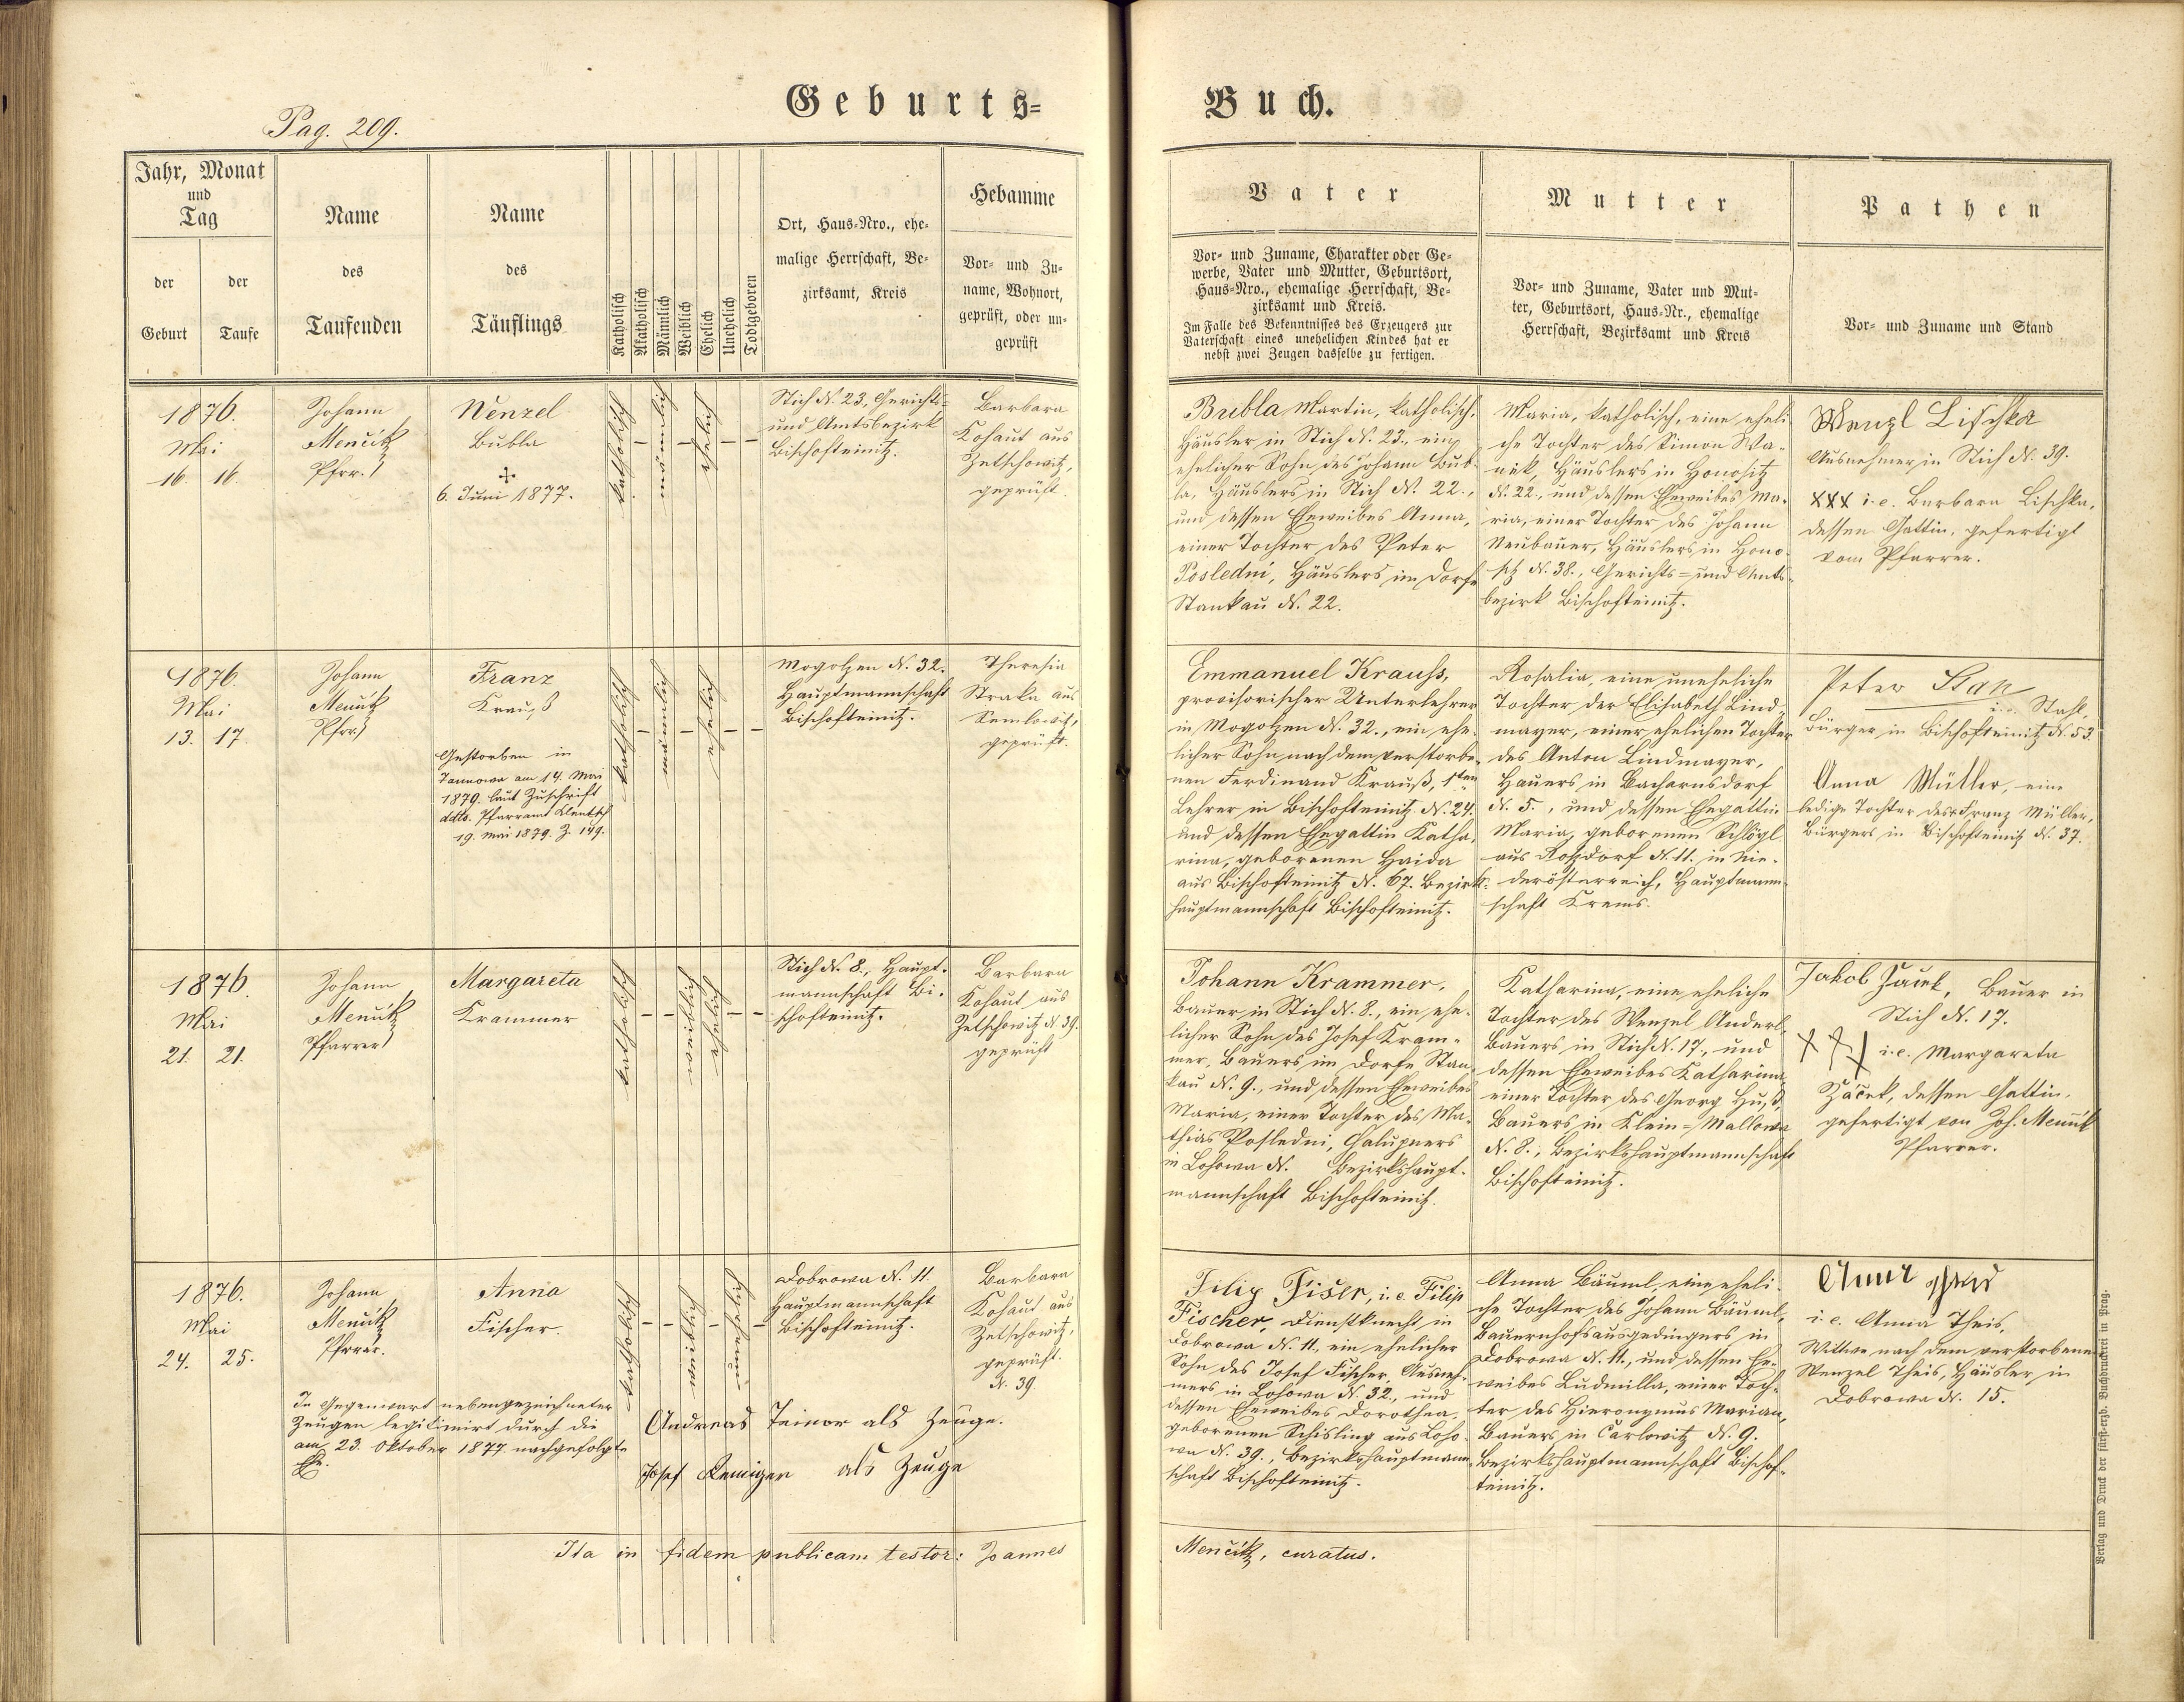 Pag. 209.
Geburts=
Buch.
Jahr, Monat
und
Tag
der
Geburt
der
Taufe
Name
des
Taufenden
Name
des
Täuflings
Katholisch
Akatholisch
Männlich
Weiblich
Ehelich
Unehelich
Todtgeboren
Ort, Haus-Nro., ehe-
malige Herrschaft, Be-
zirksamt, Kreis
Hebamme
Vor- und Zu-
name, Wohnort,
geprüft, oder un-
geprüft
Vater
Vor- und Zuname, Charakter oder Ge-
werbe, Vater und Mutter, Geburtsort,
Haus-Nro., ehemalige Herrschaft, Be-
zirksamt und Kreis.
Im Falle des Bekenntnisses des Erzeugers zur
Vaterschaft eines unehelichen Kindes hat er
nebst zwei Zeugen dasselbe zu fertigen.
Mutter
Vor- und Zuname, Vater und Mut-
ter, Geburtsort, Haus-Nr., ehemalige
Herrschaft, Bezirksamt und Kreis
Pathen
Vor- und Zuname und Stand
1876.
Mai
16. 16.
Johann
Menčik
Pfrr.
Wenzel
Bubla
6. Juni 1877.
katholisch
–
männlich
–
ehelich
– –
Stich N. 23., Gerichts=
und Amtsbezirk
Bischofteinitz.
Barbara
Kohaut aus
Zetschowitz,
geprüft.
Bubla Martin, katholisch,
Häusler in Stich N. 23., ein
ehelicher Sohn des Johann Bub-
la, Häuslers in Stich N. 22.,
und dessen Eheweibes Anna,
einer Tochter des Peter
Poslední, Häuslers im Dorfe
Stankau N. 22.
Maria, katholisch, eine eheli-
che Tochter des Simon Wa-
nek, Häuslers in Honositz
N. 22., und dessen Eheweibes Ma-
ria, einer Tochter des Johann
Neubauer, Häuslers in Hono-
sitz N. 38., Gerichts= und Amts-
bezirk Bischofteinitz.
Wenzl Lischka
Ausnehmer in Stich N. 39.
XXX i. e. Barbara Lischka,
dessen Gattin, gefertigt
vom Pfarrer.
1876.
Mai
13. 17.
Johann
Menčik
Pfrr.
Franz
Krauß
Gestorben in
Taunowa am 14. Mai
1879. laut Zuschrift
ddto. Pfarramt Klentsch
19. Mai 1879. Z. 149.
katholisch
–
männlich
–
ehelich
– –
Mogolzen N. 32.
Hauptmannschaft
Bischofteinitz.
Theresia
Straka aus
Semlowitz,
geprüft.
Emmanuel Krauß,
provisorischer Unterlehrer
in Mogolzen N. 32., ein ehe-
licher Sohn nach dem verstorbe-
nen Ferdinand Krauß, 1ten
Lehrer in Bischofteinitz N. 24.
und dessen Ehegattin Katha-
rina, geborenen Haida
aus Bischofteinitz N. 67. Bezirks-
hauptmannschaft Bischofteinitz.
Rosalia, eine uneheliche
Tochter der Elisabeth Lind-
mayer, einer ehelichen Tochter
des Anton Lindmayer,
Hauers in Bacharnsdorf
N. 5., und dessen Ehegattin
Maria, geborenen Schlögl
aus Roßdorf N. 11. in Nie-
derösterreich, Hauptmann-
schaft Krems.
Peter Stah
i. e. Stahl,
Bürger in Bischofteinitz N. 53.
Anna Müller, eine
ledige Tochter des Franz Müller,
Bürgers in Bischofteinitz N. 37.
1876.
Mai
21. 21.
Johann
Menčik
Pfarrer
Margareta
Krammer
katholisch
– –
weiblich
ehelich
– –
Stich N. 8., Haupt-
mannschaft Bi-
schofteinitz.
Barbara
Kohaut aus
Zetschowitz N. 39.
geprüft
Johann Krammer,
Bauer in Stich N. 8., ein ehe-
licher Sohn des Josef Kram-
mer, Bauers im Dorfe Stan-
kau N. 9., und dessen Eheweibes
Maria, einer Tochter des Ma-
thias Posledni, Chalupners
in Lohowa N. Bezirkshaupt-
mannschaft Bischofteinitz.
Katharina, eine eheliche
Tochter des Wenzel Anderl,
Bauers in Stich N. 17., und
dessen Eheweibes Katharina,
einer Tochter des Georg Huß,
Bauers in Klein=Mallowa
N. 8., Bezirkshauptmannschaft
Bischofteinitz.
Jakob Žaček, Bauer in
Stich N. 17.
XXX i. e. Margareta
Žáček, dessen Gattin,
gefertigt von Joh. Menčik
Pfarrer.
1876.
Mai
24. 25.
Johann
Menčik
Pfarrer.
Anna
Fischer.
katholisch
– –
weiblich
–
unehelich
–
Dobrowa N. 11.
Hauptmannschaft
Bischofteinitz.
Barbara
Kohaut aus
Zetschowitz,
geprüft.
N. 39.
In Gegenwart nebengezeichneter
Zeugen legitimirt durch die
am 23. Oktober 1877 nachgefolgte
Ehe.
Andreas Teinor als Zeuge.
Josef Reiniger als Zeuge
Filip Fišer, i. e. Filip
Fischer, Dienstknecht in
Dobrowa N. 11., ein ehelicher
Sohn des Josef Fischer, Ausneh-
mers in Lohowa N. 32., und
dessen Eheweibes Dorothea,
geborenen Schisling aus Loho-
wa N. 39., Bezirkshauptmann-
schaft Bischofteinitz.
Anna Bäuml, eine eheli-
che Tochter des Johann Bäuml,
Bauernhofsausgedingers in
Dobrowa N. 11., und dessen Ehe-
weibes Ludmilla, einer Toch-
ter des Hieronymus Marian,
Bauers in Carlowitz N. 9.
Bezirkshauptmannschaft Bischof-
teinitz.
Anna
i. e. Anna Theis,
Wittwe nach dem verstorbenen
Wenzel Theis, Häusler in
Dobrowa N. 15.
Ita in fidem publicam testor: Joannes
Menčik, curatus.
Verlag und Druck der fürst-erzb. Buchdruckerei in Prag.